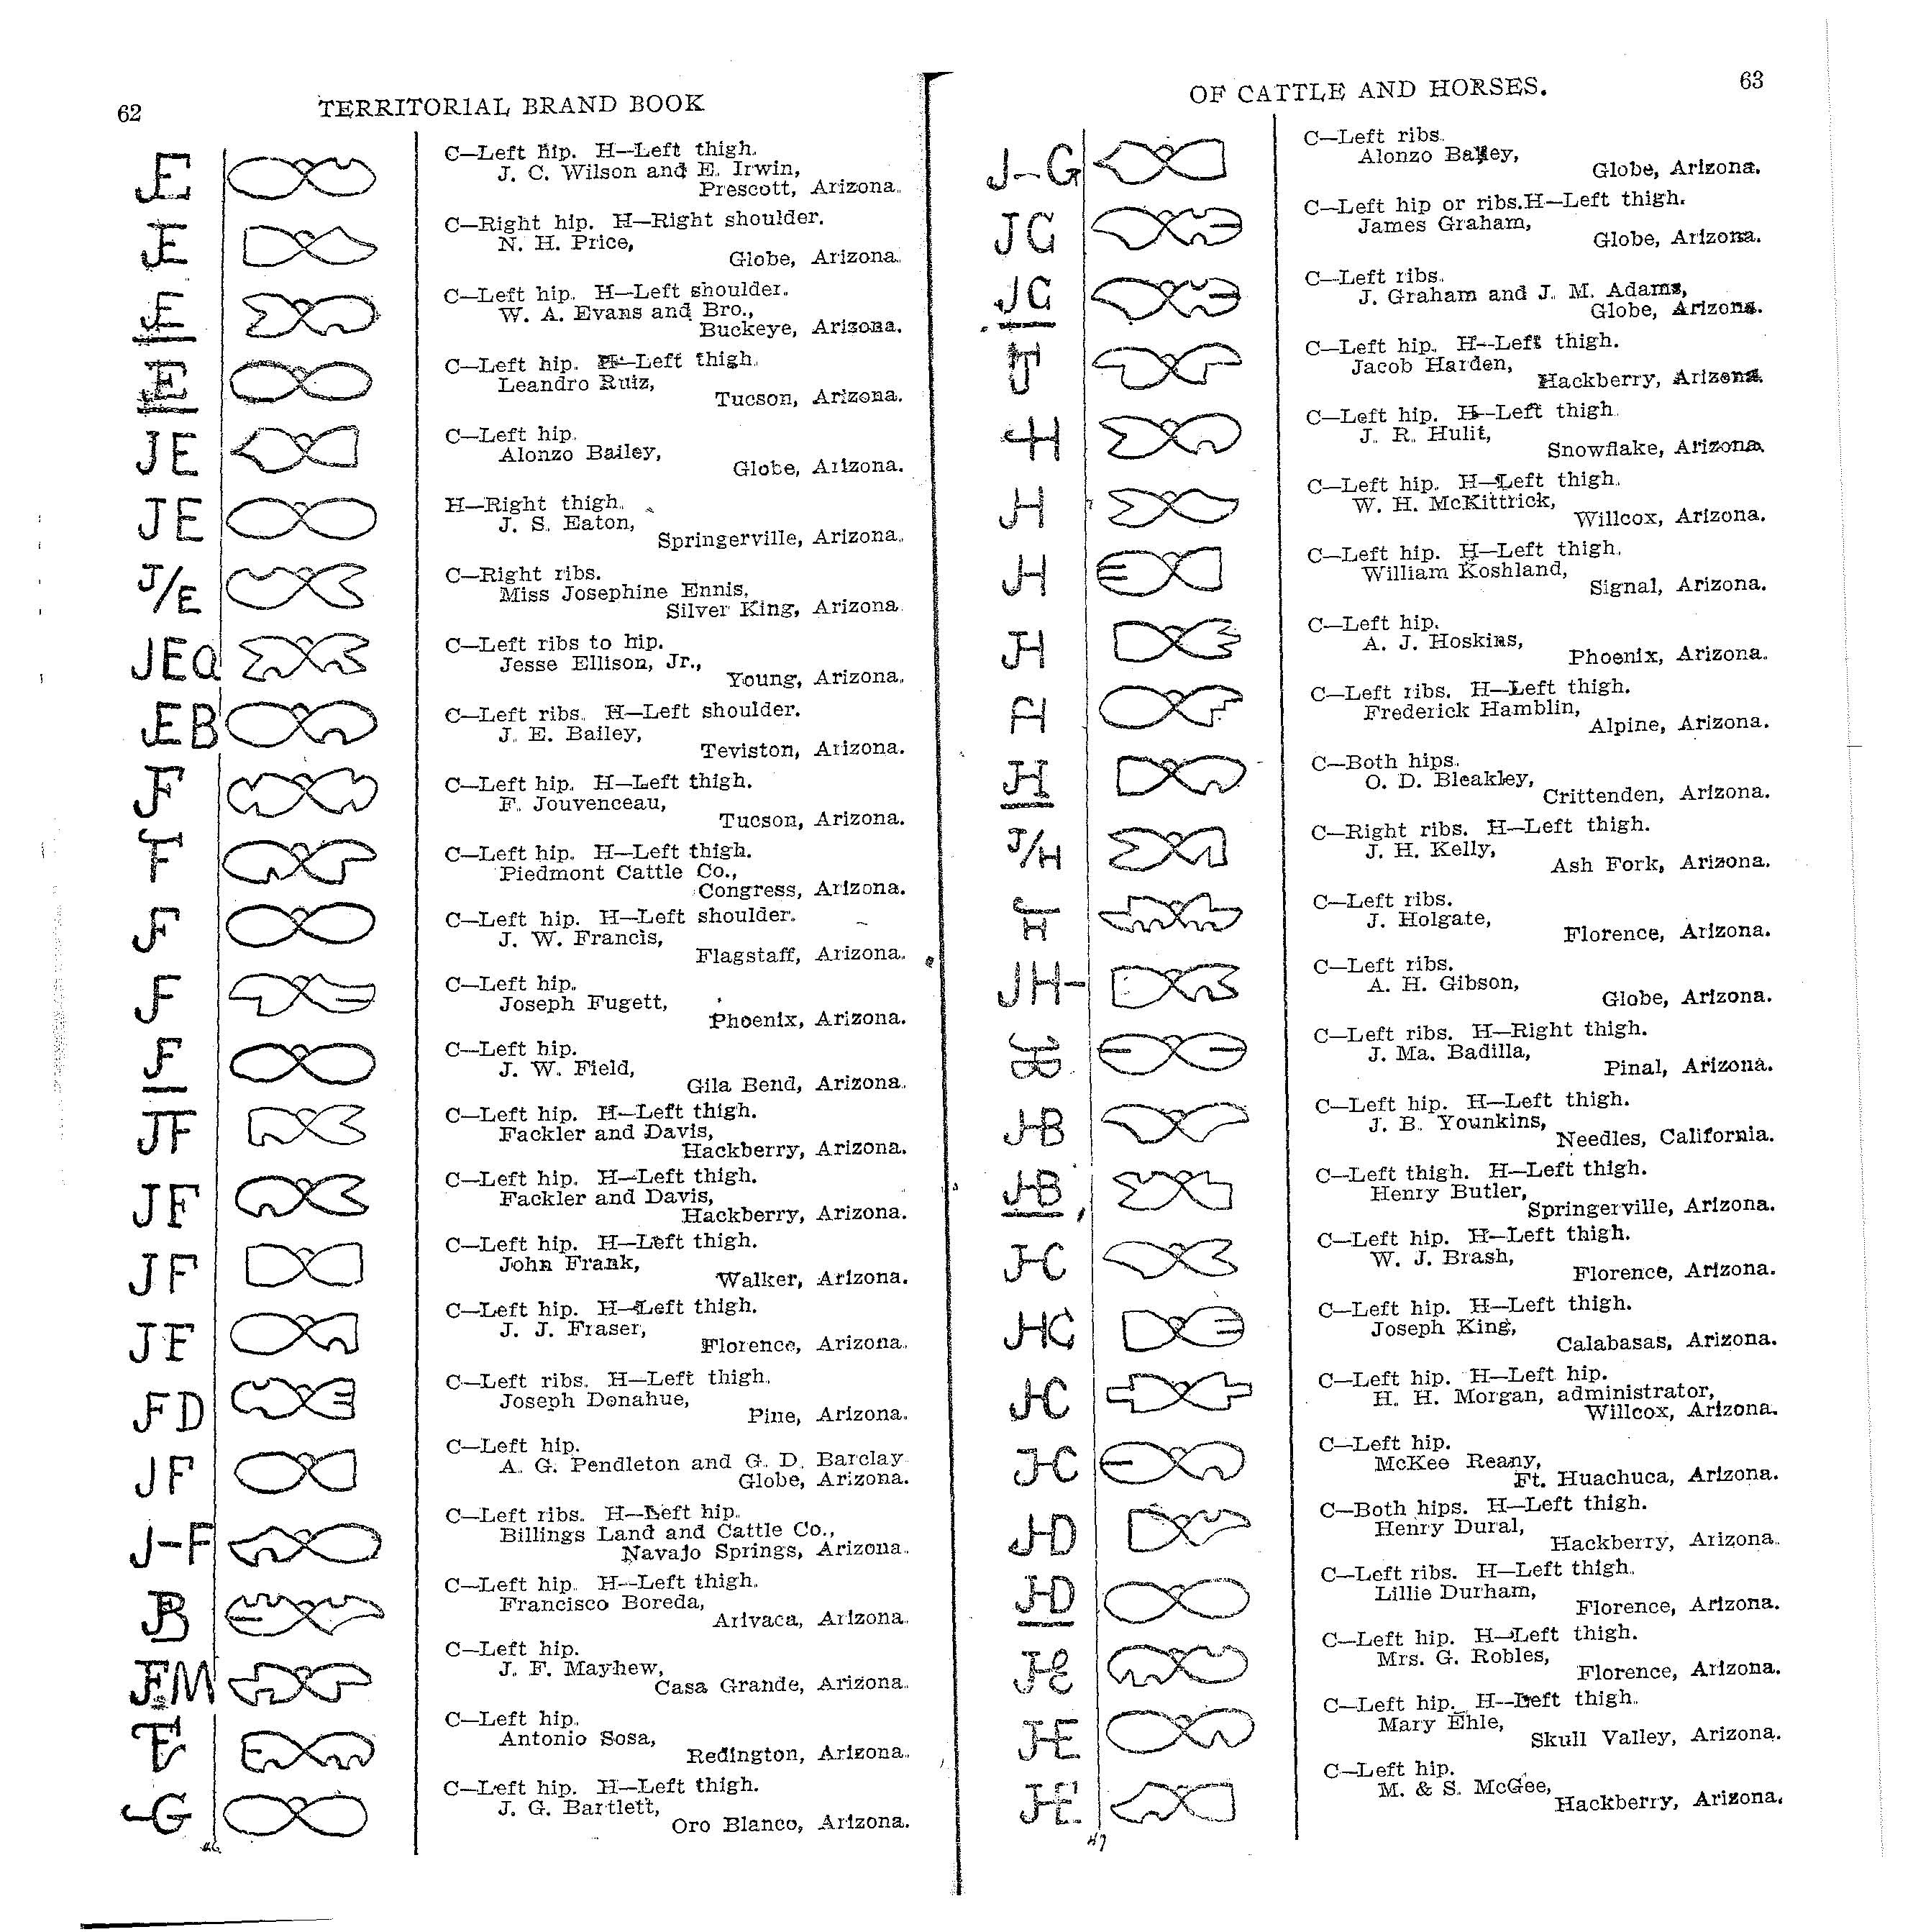 62
TERRITORIAL BRAND BOOK
JE
C—Left hip. H—Left thigh.
J. C. Wilson and E. Irwin,
Prescott, Arizona.
JE
C—Right hip. H—Right shoulder.
N. H. Price,
Globe, Arizona.
JE
C—Left hip. H—Left shoulder.
W. A. Evans and Bro.,
Buckeye, Arizona.
C—Left hip. H—Left thigh.
Leandro Ruiz,
Tucson, Arizona.
JE
C—Left hip.
Alonzo Bailey,
Globe, Arizona.
JE
H—Right thigh.
J. S. Eaton,
Springerville, Arizona.
J/E
C—Right ribs.
Miss Josephine Ennis,
Silver King, Arizona.
JEQ
C—Left ribs to hip.
Jesse Ellison, Jr.,
Young, Arizona.
JEB
C—Left ribs. H—Left shoulder.
J. E. Bailey,
Teviston, Arizona.
JF
C—Left hip. H—Left thigh.
F. Jouvenceau,
Tucson, Arizona.
C—Left hip. H—Left thigh.
Piedmont Cattle Co.,
Congress, Arizona.
JF
C—Left hip. H—Left shoulder.
J. W. Francis,
Flagstaff, Arizona.
JF
C—Left hip.
Joseph Fugett,
Phoenix, Arizona.
JF
C—Left hip.
J. W. Field,
Gila Bend, Arizona.
JF
C—Left hip. H—Left thigh.
Fackler and Davis,
Hackberry, Arizona.
JF
C—Left hip. H—Left thigh.
Fackler and Davis,
Hackberry, Arizona.
JF
C—Left hip. H—Left thigh.
John Frank,
Walker, Arizona.
JF
C—Left hip. H—Left thigh.
J. J. Fraser,
Florence, Arizona.
JFD
C—Left ribs. H—Left thigh.
Joseph Donahue,
Pine, Arizona.
JF
C—Left hip.
A. G. Pendleton and G. D. Barclay
Globe, Arizona.
J-F
C—Left ribs. H—Left hip.
Billings Land and Cattle Co.,
Navajo Springs, Arizona.
C—Left hip. H—Left thigh.
Francisco Boreda,
Arivaca, Arizona.
JFM
C—Left hip.
J. F. Mayhew,
Casa Grande, Arizona.
C—Left hip.
Antonio Sosa,
Redington, Arizona.
JG
C—Left hip. H—Left thigh.
J. G. Bartlett,
Oro Blanco, Arizona.
46
OF CATTLE AND HORSES.
63
J-G
C—Left ribs.
Alonzo Bailey,
Globe, Arizona.
JG
C—Left hip or ribs.H—Left thigh.
James Graham,
Globe, Arizona.
JG
C—Left ribs.
J. Graham and J. M. Adams,
Globe, Arizona.
C—Left hip. H—Left thigh.
Jacob Harden,
Hackberry, Arizona.
JH
C—Left hip. H—Left thigh.
J. R. Hulit,
Snowflake, Arizona.
JH
C—Left hip. H—Left thigh.
W. H. McKittrick,
Willcox, Arizona.
JH
C—Left hip. H—Left thigh.
William Koshland,
Signal, Arizona.
JH
C—Left hip.
A. J. Hoskins,
Phoenix, Arizona.
C—Left ribs. H—Left thigh.
Frederick Hamblin,
Alpine, Arizona.
JH
C—Both hips.
O. D. Bleakley,
Crittenden, Arizona.
J/H
C—Right ribs. H—Left thigh.
J. H. Kelly,
Ash Fork, Arizona.
C—Left ribs.
J. Holgate,
Florence, Arizona.
JH-
C—Left ribs.
A. H. Gibson,
Globe, Arizona.
C—Left ribs. H—Right thigh.
J. Ma. Badilla,
Pinal, Arizona.
JHB
C—Left hip. H—Left thigh.
J. B. Younkins,
Needles, California.
JHB
C—Left thigh. H—Left thigh.
Henry Butler,
Springerville, Arizona.
JHC
C—Left hip. H—Left thigh.
W. J. Brash,
Florence, Arizona.
JHC
C—Left hip. H—Left thigh.
Joseph King,
Calabasas, Arizona.
JHC
C—Left hip. H—Left hip.
H. H. Morgan, administrator,
Willcox, Arizona.
JHC
C—Left hip.
McKee Reany,
Ft. Huachuca, Arizona.
JHD
C—Both hips. H—Left thigh.
Henry Dural,
Hackberry, Arizona.
JHD
C—Left ribs. H—Left thigh.
Lillie Durham,
Florence, Arizona.
JHE
C—Left hip. H—Left thigh.
Mrs. G. Robles,
Florence, Arizona.
JHE
C—Left hip. H—Left thigh.
Mary Ehle,
Skull Valley, Arizona.
JHE
C—Left hip.
M. & S. McGee,
Hackberry, Arizona.
47